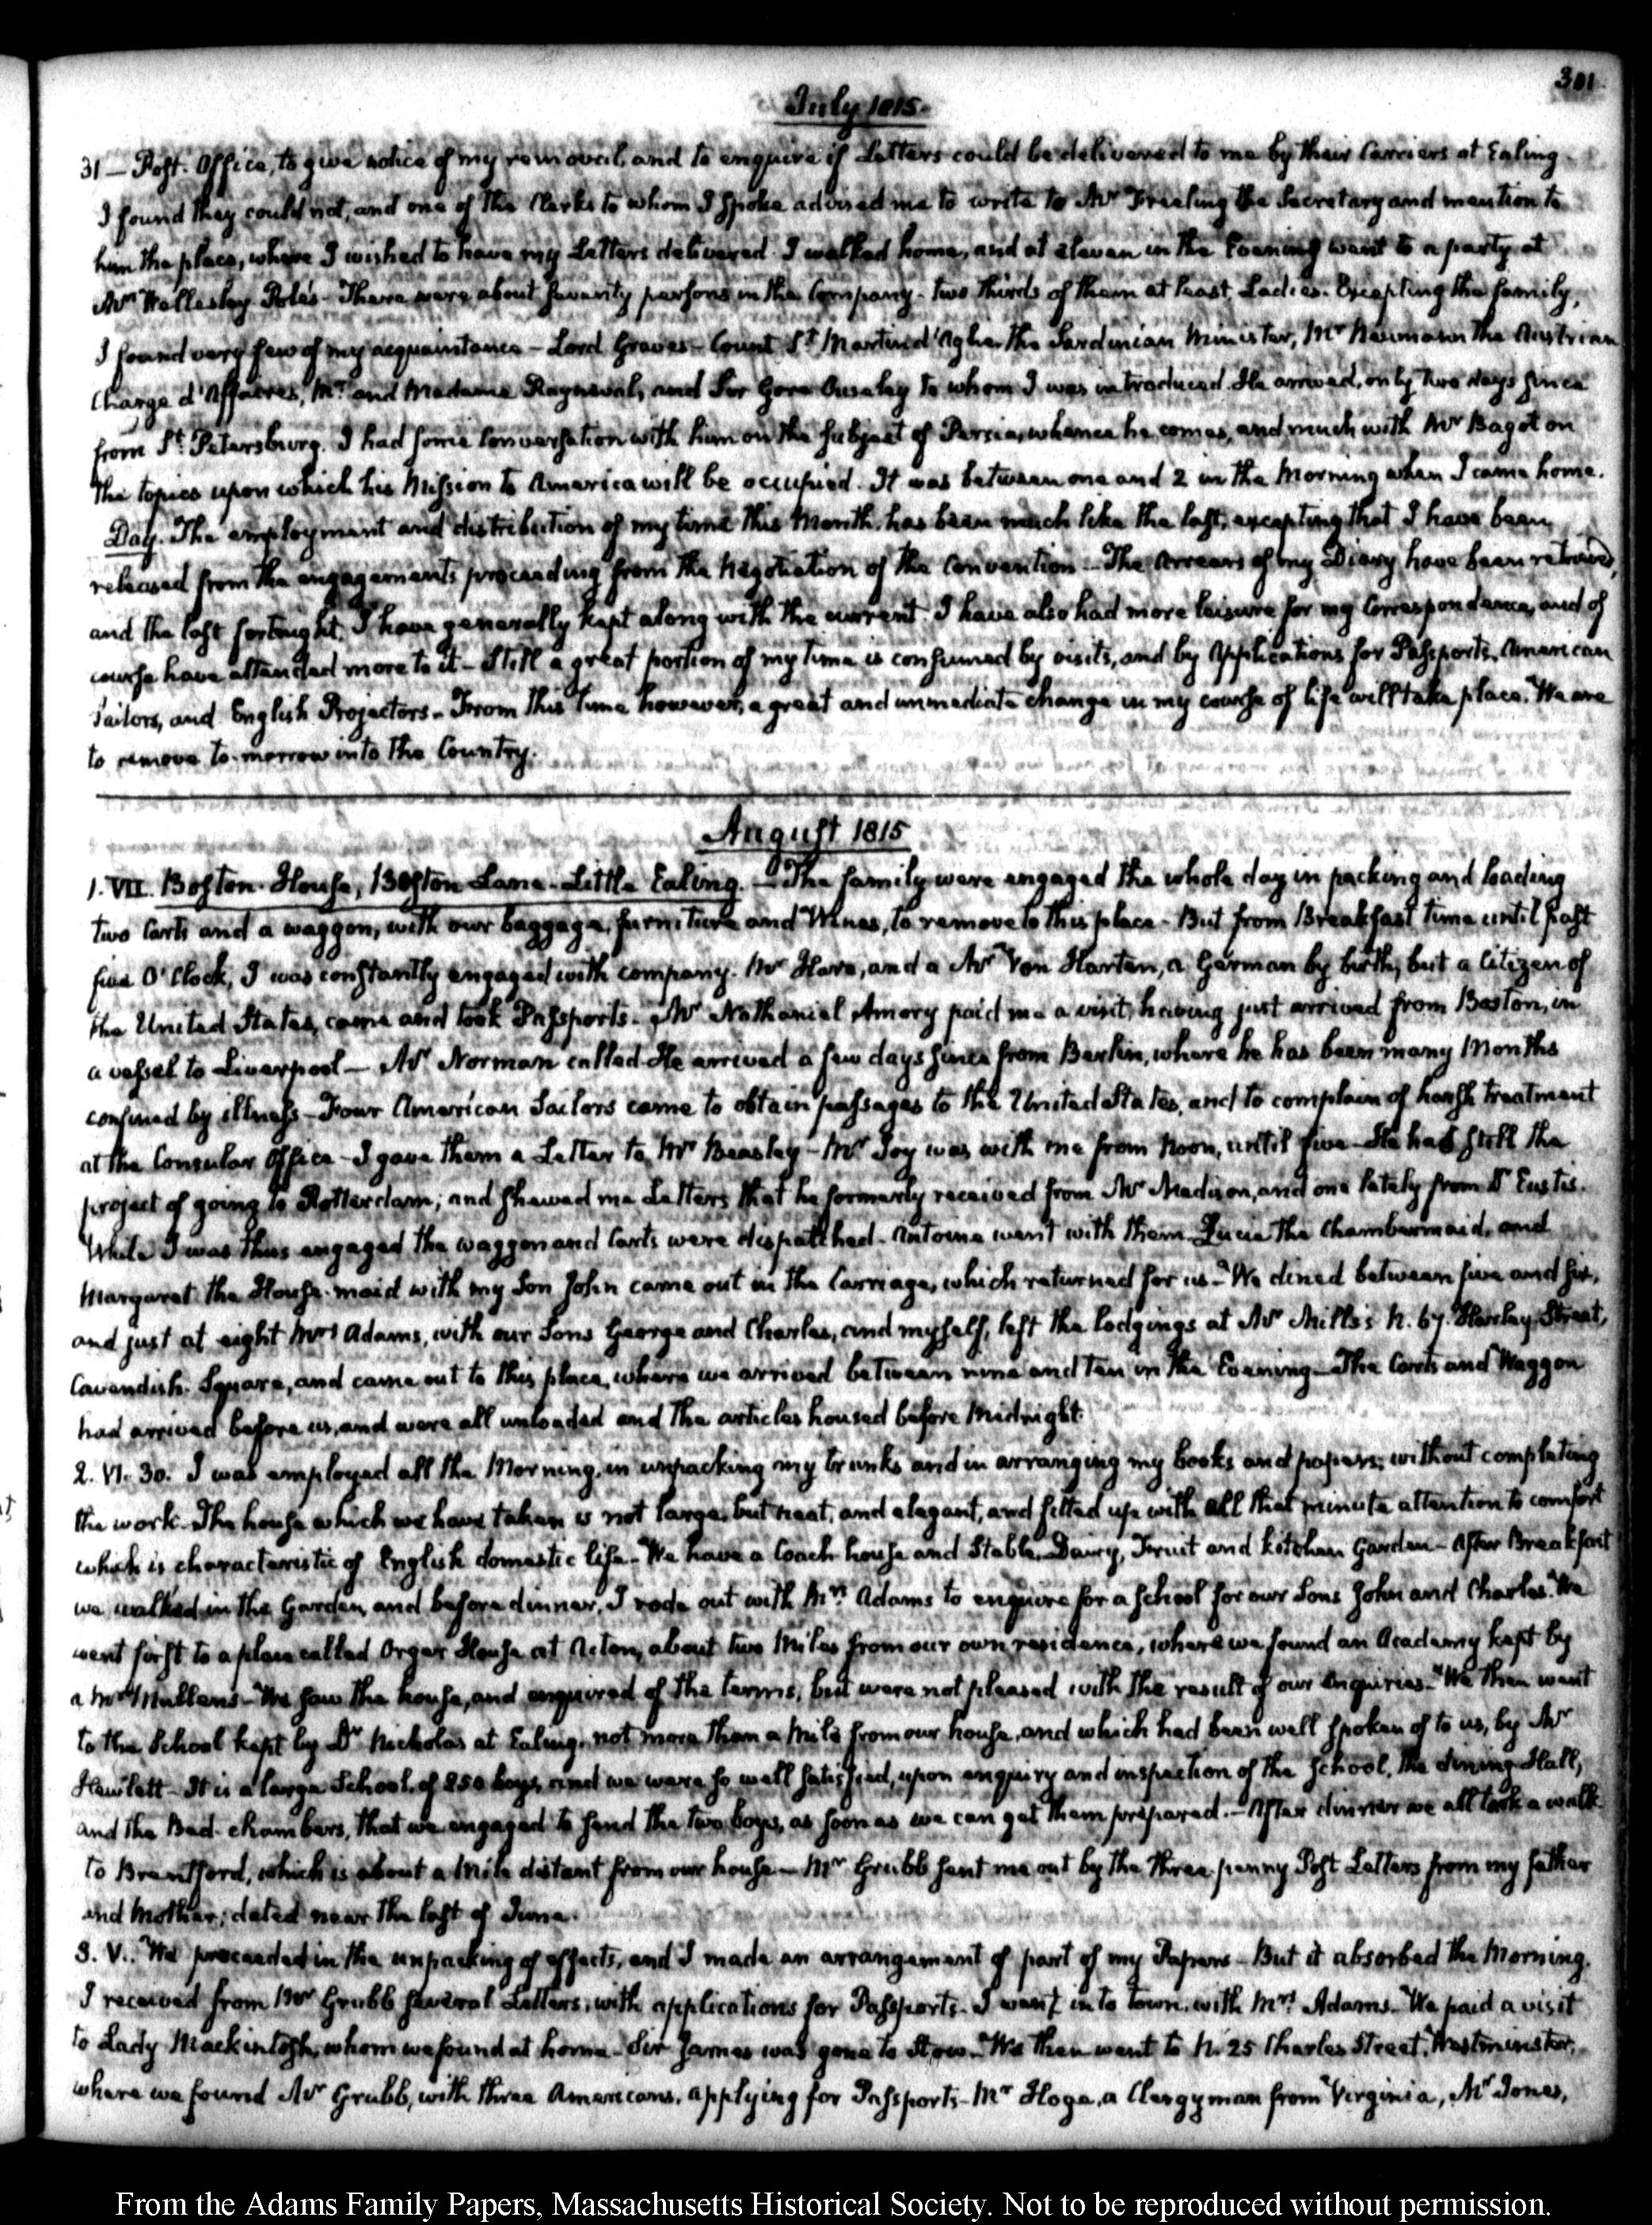 301.
July 1815.
31 — Post-Office, to give notice of my removal, and to enquire if Letters could be delivered to me by their Carriers at Ealing.
I found they could not, and one of the Clerks to whom I spoke advised me to write to Mr Freeling the Secretary and mention to
him the place, where I wished to have my Letters delivered. I walked home, and at eleven in the Evening went to a party at
Mr Wellesley Pole's. There were about seventy persons in the Company. two thirds of them at least, Ladies. Excepting the family,
I found very few of my acquaintance — Lord Graves — Count St. Martin d'Aglie the Sardinian Minister, Mr Neumann the Austrian
Chargé d'Affaires, Mr and Madame Rayneval, and Sir Gore Ouseley to whom I was introduced. He arrived, only two days since
from St. Petersburg. I had some conversation with him on the subject of Persia, whence he comes, and much with Mr Bagot on
the topics upon which his Mission to America will be occupied. It was between one and 2 in the Morning when I came home.
Day. The employment and distribution of my time this Month, has been much like the last, excepting that I have been
released from the engagements proceeding from the Negotiation of the Convention — The Arrears of my Diary have been retrieved,
and the last fortnight, I have generally kept along with the current. I have also had more leisure for my Correspondence, and of
course have attended more to it — Still a great portion of my time is consumed by visits, and by Applications for Passports, American
Sailors, and English Projectors. From this time however, a great and immediate change in my course of life will take place. We are
to remove to-morrow into the Country.
August 1815
1. VII. Boston-House, Boston Lane. Little Ealing. — The family were engaged the whole day in packing and loading
two Carts and a waggon, with our baggage, furniture and Wines, to remove to this place — But from Breakfast time until past
five O'Clock, I was constantly engaged with company. Mr Hare, and a Mr Von Harten, a German by birth, but a Citizen of
the United States, came and took Passports. Mr Nathaniel Amory paid me a visit, having just arrived from Boston, in
a vessel to Liverpool — Mr Norman called. He arrived a few days since from Berlin, where he has been many Months
confined by illness — Four American Sailors came to obtain passages to the United States, and to complain of harsh treatment
at the Consular Office — I gave them a Letter to Mr Beasley — Mr Joy was with me from Noon, until five — He had still the
project of going to Rotterdam; and shewed me Letters that he formerly received from Mr Madison, and one lately from Dr Eustis.
While I was thus engaged the waggon and Carts were dispatched. Antoine went with them. Lucia the Chambermaid, and
Margaret the House-maid with my Son John came out in the Carriage, which returned for us — We dined between five and six,
and just at eight Mrs Adams, with our Sons George and Charles, and myself, left the lodgings at Mr Mills's N. 67. Harley Street,
Cavendish-Square, and came out to this place, where we arrived between nine and ten in the Evening — The Carts and Waggon
had arrived before us, and were all unloaded and the articles housed before Midnight.
2. VI. 30. I was employed all the Morning, in unpacking my trunks and in arranging my books and papers; without completing
the work. The house which we have taken is not large, but neat, and elegant, and fitted up with all that minute attention to comfort
which is characteristic of English domestic life — We have a Coach-house and Stable, Dairy, Fruit and Kitchen Garden — After Breakfast
we walked in the Garden, and before dinner, I rode out with Mrs Adams to enquire for a School for our Sons John and Charles. We
went first to a place called Orger House at Acton, about two Miles from our own residence, where we found an Academy kept by
a Mr Mullens — We saw the house, and enquired of the terms; but were not pleased with the result of our Enquiries — We then went
to the School kept by Dr Nicholas at Ealing, not more than a Mile from our house, and which had been well spoken of to us, by Mr
Hewlett — It is a large School, of 250 boys, and we were so well satisfied, upon enquiry and inspection of the School, the dining-Hall,
and the Bed-chambers, that we engaged to send the two boys, as soon as we can get them prepared. — After dinner we all took a walk
to Brentford, which is about a Mile distant from our house — Mr Grubb sent me out by the three-penny Post Letters from my father
and Mother; dated near the last of June.
3. V. We proceeded in the unpacking of effects, and I made an arrangement of part of my Papers — But it absorbed the Morning.
I received from Mr Grubb several Letters, with applications for Passports. I went into town, with Mrs Adams — We paid a visit
to Lady Mackintosh, whom we found at home — Sir James was gone to Stow — We then went to N. 25 Charles Street, Westminster,
where we found Mr Grubb, with three Americans, applying for Passports — Mr Hoge, a Clergyman from Virginia, Mr Jones,
From the Adams Family Papers, Massachusetts Historical Society. Not to be reproduced without permission.